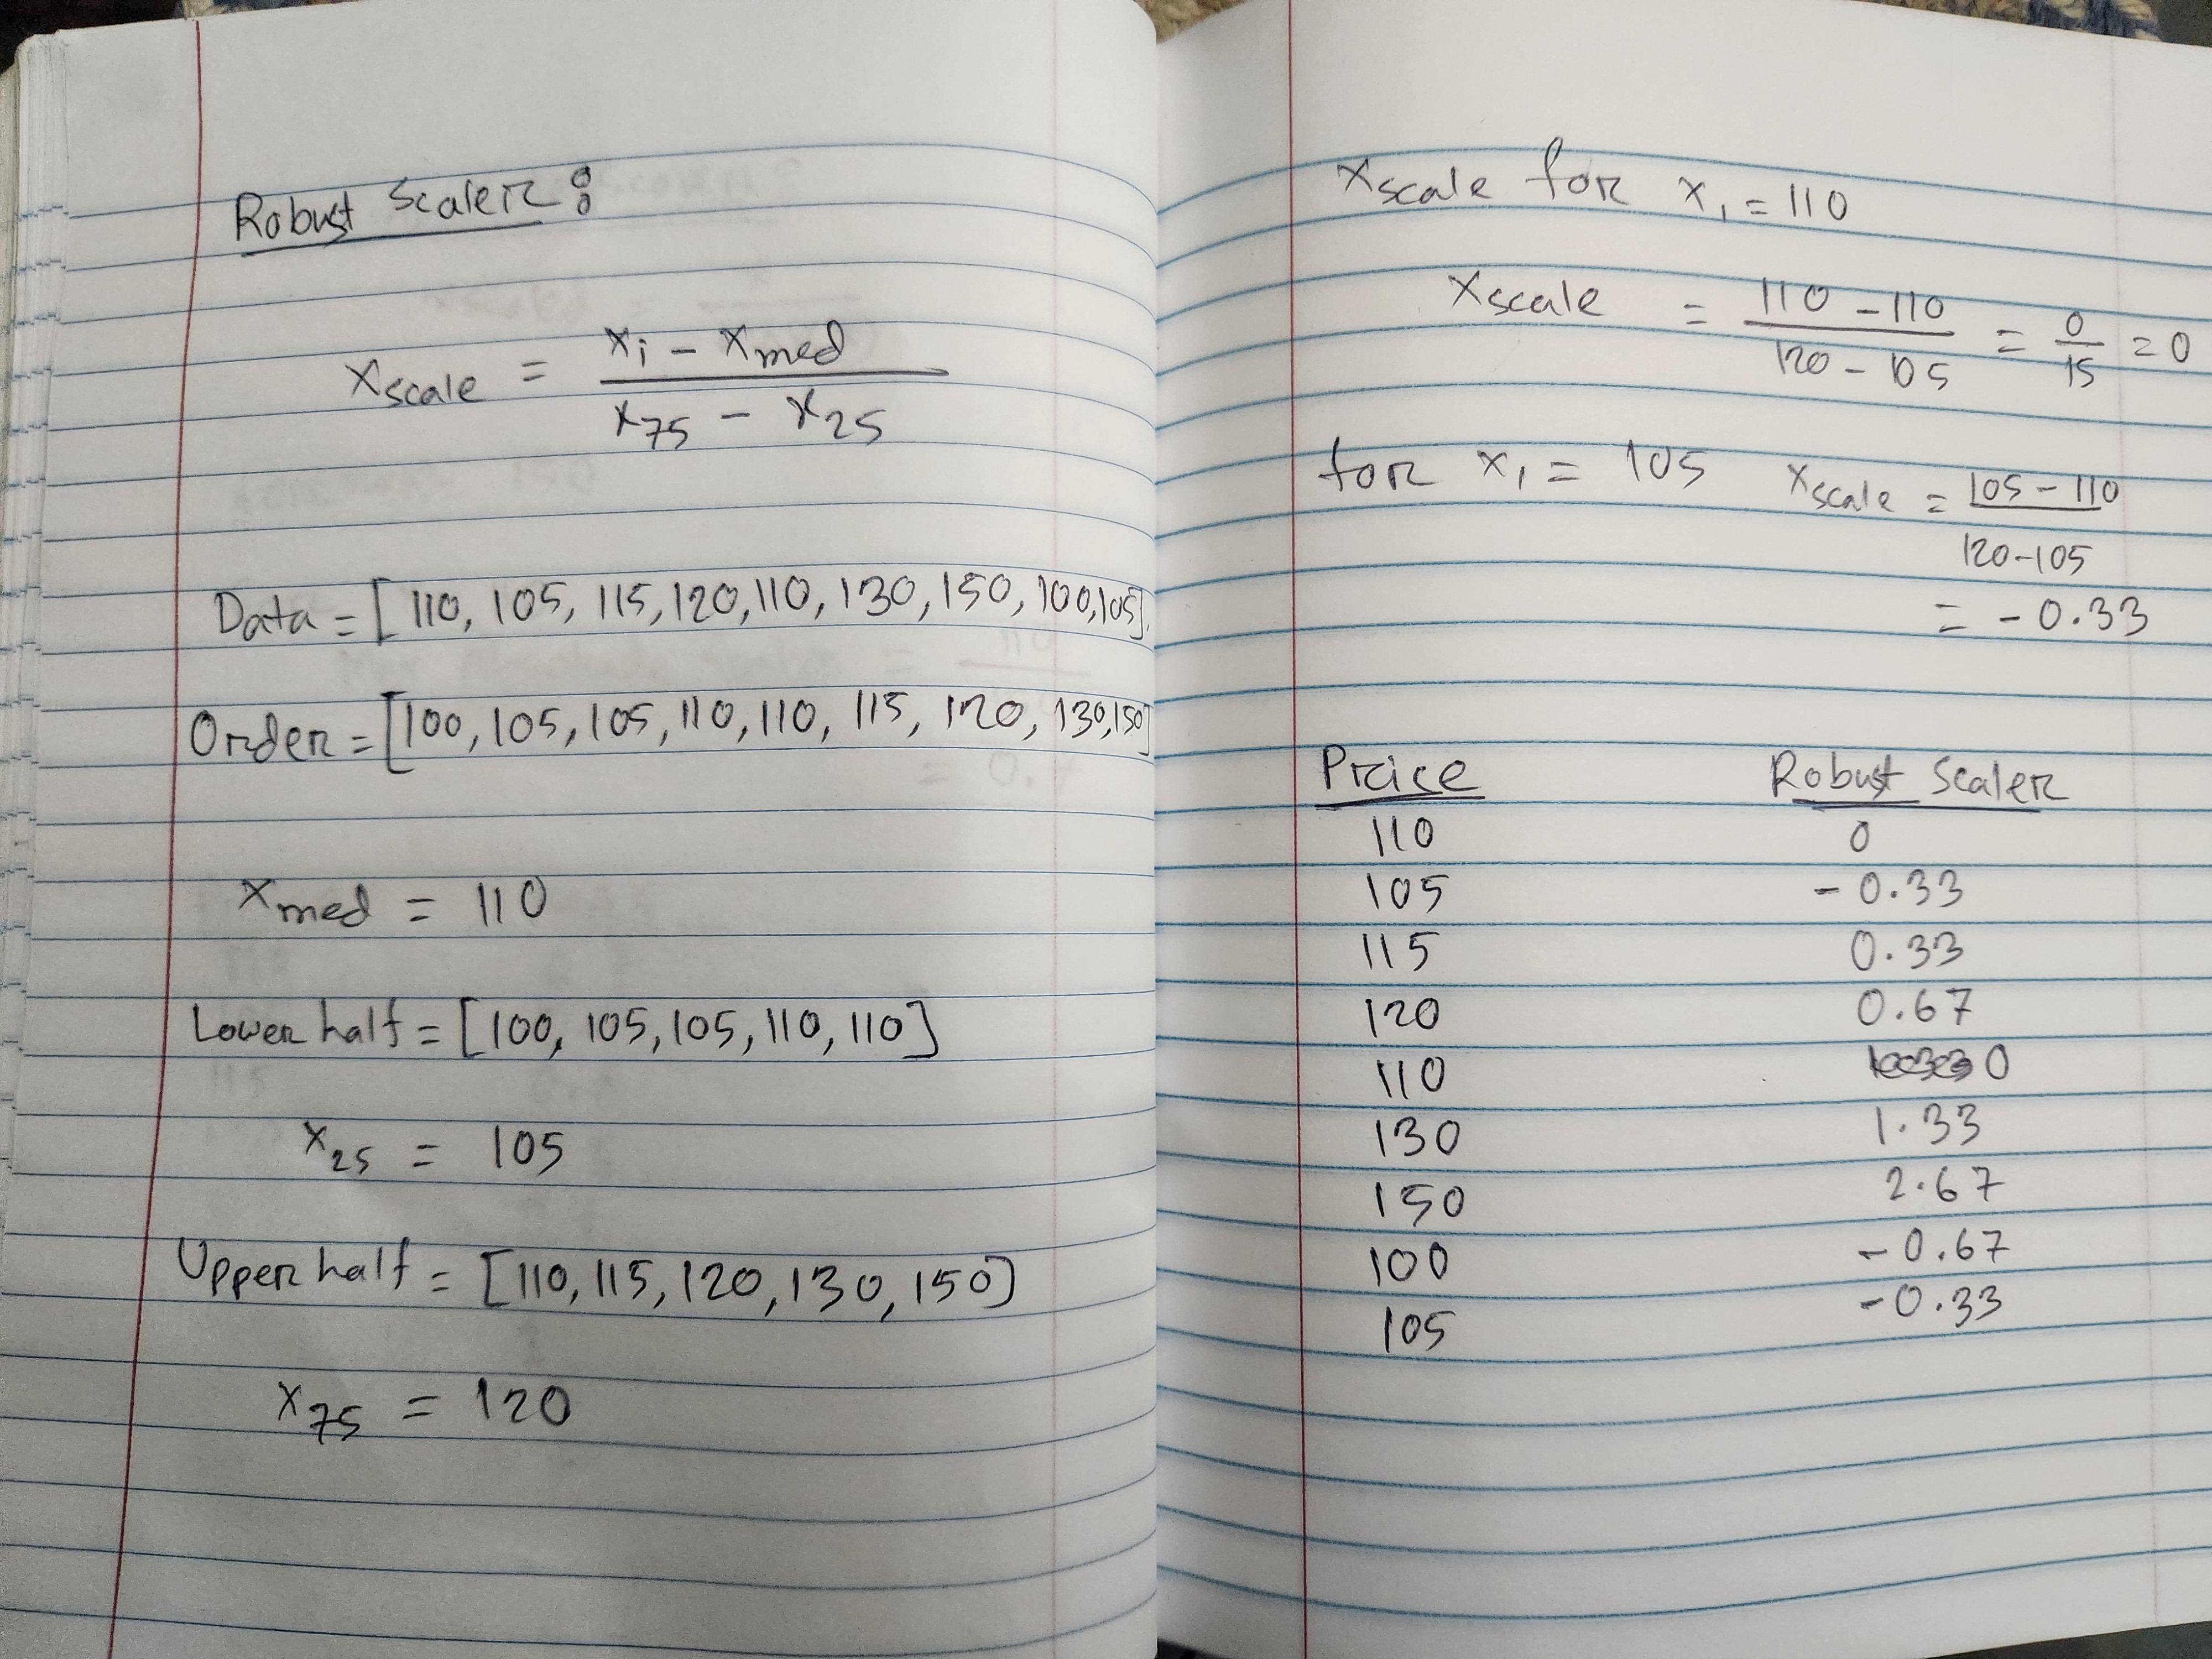 Robust Scaler:
Xscale = (xi - xmed) / (x75 - x25)
Data = [110, 105, 115, 120, 110, 130, 150, 100, 105].
Order = [100, 105, 105, 110, 110, 115, 120, 130, 150]
xmed = 110
Lower half = [100, 105, 105, 110, 110]
x25 = 105
Upper half = [110, 115, 120, 130, 150]
x75 = 120
Xscale for x1 = 110
Xscale = (110 - 110) / (120 - 105) = 0/15 = 0
for x1 = 105 Xscale = (105 - 110) / (120-105)
= - 0.33
Price Robust Scaler
110 0
105 - 0.33
115 0.33
120 0.67
110 0
130 1.33
150 2.67
100 - 0.67
105 - 0.33